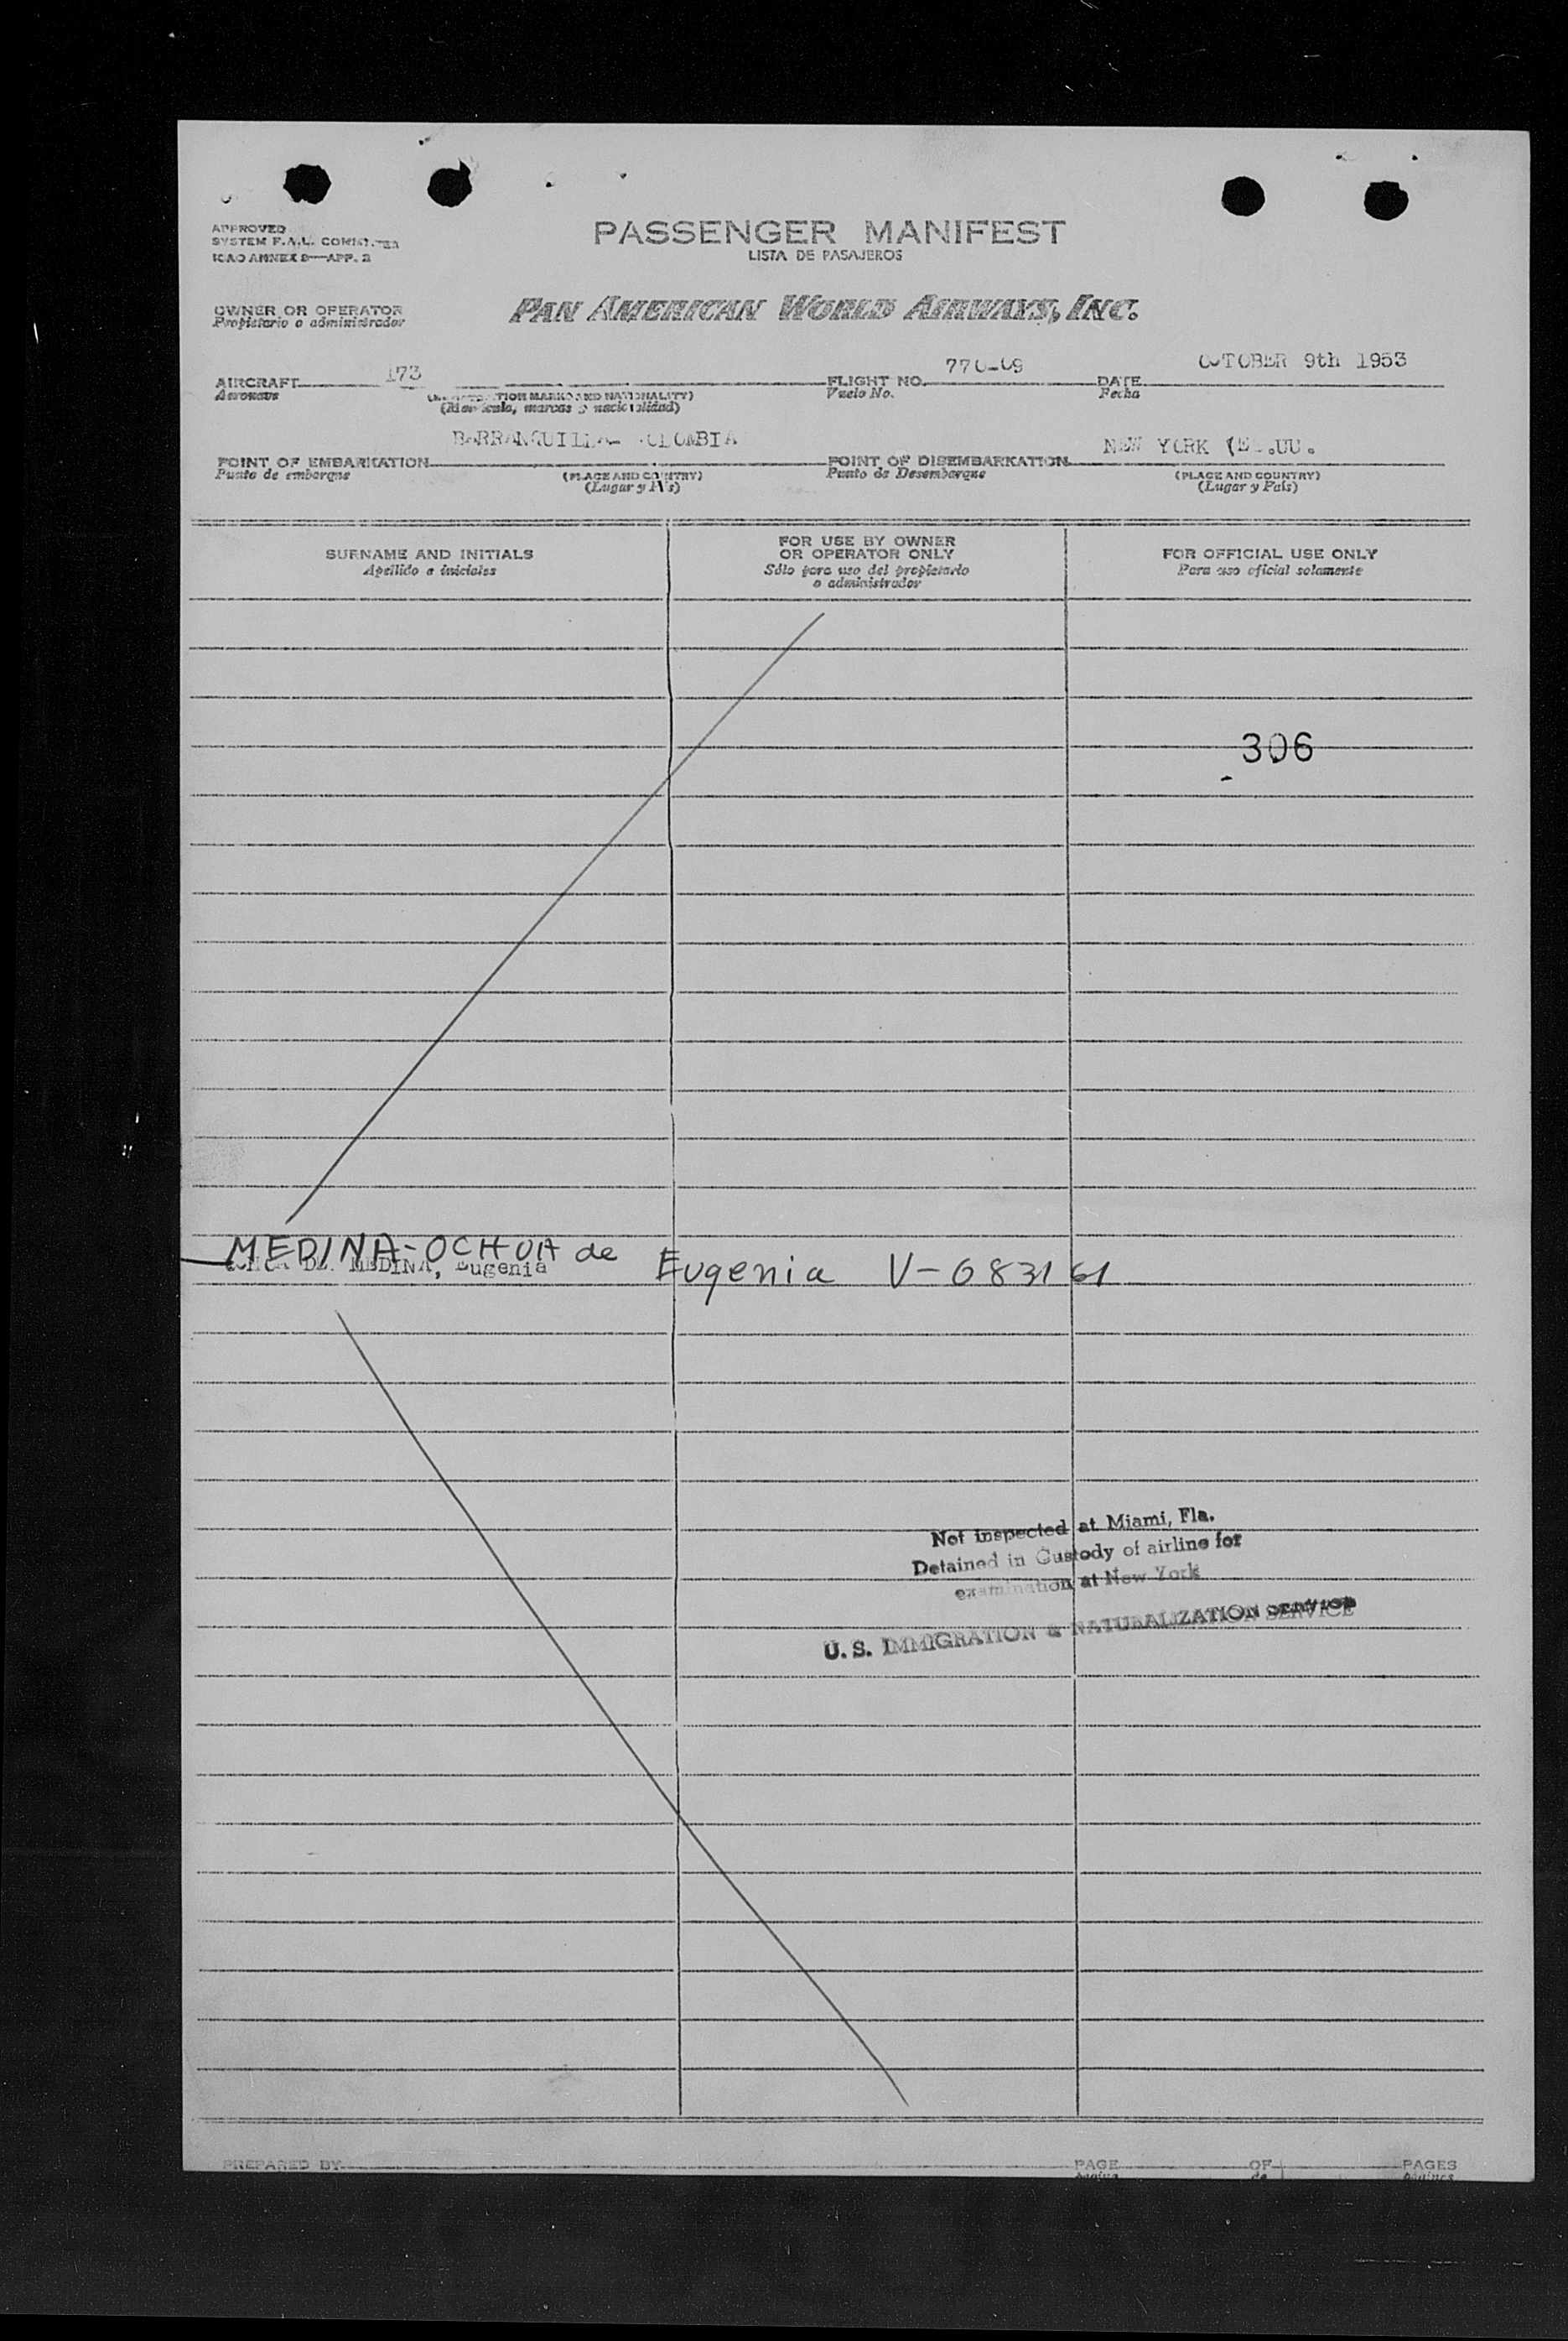 APPROVED
SYSTEM F.A.L. COMMITTEE
ICAO ANNEX 9—APP. 2
PASSENGER MANIFEST
LISTA DE PASAJEROS
OWNER OR OPERATOR
Propietario o administrador
PAN AMERICAN WORLD AIRWAYS, INC.
AIRCRAFT 173 FLIGHT NO. 770-09 DATE OCTOBER 9th 1953
Aeronave Vuelo No. Fecha
MARKS AND NATIONALITY)
(Matrícula, marcas y nacionalidad)
POINT OF EMBARKATION BARRANQUILLA- COLOMBIA POINT OF DISEMBARKATION NEW YORK (EE.UU.
Punto de embarque (PLACE AND COUNTRY) Punto de Desembarque (PLACE AND COUNTRY)
(Lugar y País) (Lugar y País)
SURNAME AND INITIALS
Apellido e iniciales
FOR USE BY OWNER
OR OPERATOR ONLY
Sólo para uso del propietario
o administrador
FOR OFFICIAL USE ONLY
Para uso oficial solamente
306
MEDINA-OCHOA de Eugenia V-683161
DE MEDINA, Eugenia
Not inspected at Miami, Fla.
Detained in Custody of airline for
examination at New York
U. S. IMMIGRATION & NATURALIZATION SERVICE
PREPARED BY PAGE OF PAGES
Página de Páginas